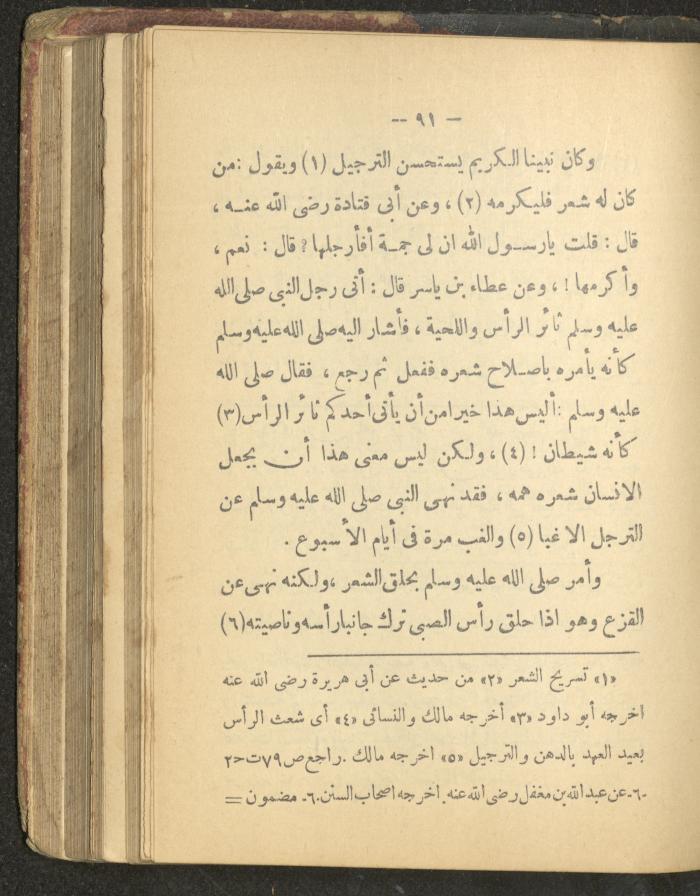 — ٩١ --
وكان نبينا الكريم يستحسن الترجيل (١) ويقول :من
كان له شعر فليكرمه (٢) ، وعن أبى قتادة رضى الله عنـه ،
قال : قلت يارسـول الله ان لى جمـة أفأرجلها ? قال : نعم ،
وأكرمها ! ، وعن عطاء بن ياسر قال : أتى رجل النبى صلى الله
عليه وسلم ثائر الرأس واللحية ، فأشار اليه صلى الله عليه وسلم
كأنه يأمره باصـلاح شعره ففعل ثم رجع ، فقال صلى الله
عليه وسلم :أليس هذا خيرا من أن يأتى أحدكم ثائر الرأس(٣)
كأنه شيطان ! (٤) ، ولكن ليس معنى هذا أن يجعل
الانسان شعره همه ، فقد نهى النبى صلى الله عليه وسلم عن
الترجل الا غبا (٥) والغب مرة فى أيام الأسبوع .
وأمر صلى الله عليه وسلم بحلق الشعر ،ولكنه نهى عن
القزع وهو اذا حلق رأس الصبى ترك جانبا رأسه وناصيته(٦)
«١» تسريح الشعر «٢» من حديث عن أبى هريرة رضى الله عنه
اخرجه أبو داود «٣» أخرجه مالك والنسائى «٤» أى شعث الرأس
بعيد العهد بالدهن والترجيل «٥» اخرجه مالك .راجع ص٧٩ت ح٢
-٦-عن عبد الله بن مغفل رضى الله عنه . اخرجه اصحاب السنن.٦- مضمون =